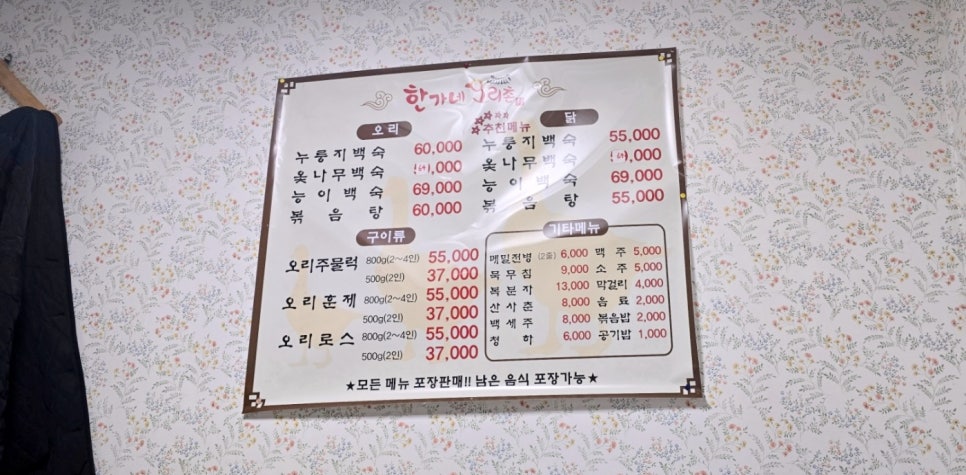 한가네 오리촌
오리
누룽지백숙 60,000
옻나무백숙 ,000
능이백숙 69,000
볶음탕 60,000
추천메뉴
닭
누룽지백숙 55,000
옻나무백숙 ,000
능이백숙 69,000
볶음탕 55,000
구이류
오리주물럭 800g(2~4인) 55,000
500g(2인) 37,000
오리훈제 800g(2~4인) 55,000
500g(2인) 37,000
오리로스 800g(2~4인) 55,000
500g(2인) 37,000
기타메뉴
메밀전병 (2줄) 6,000 맥주 5,000
묵무침 9,000 소주 5,000
복분자 13,000 막걸리 4,000
산사춘 8,000 음료 2,000
백세주 8,000 볶음밥 2,000
청하 6,000 공기밥 1,000
★모든 메뉴 포장판매!! 남은 음식 포장가능★